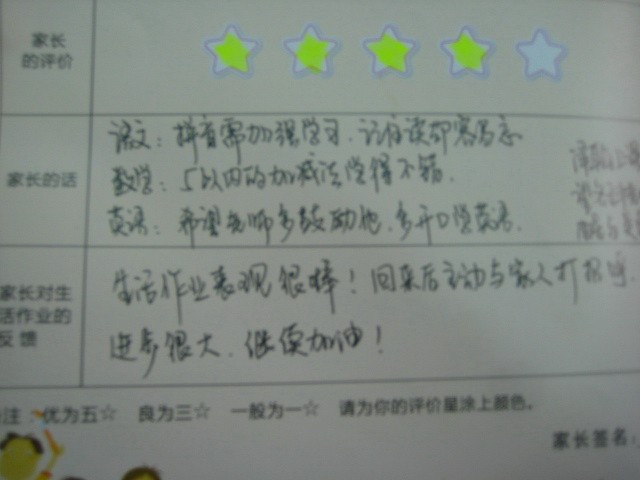 家长
的评价
家长的话
语文：拼音需加强学习.认读却容易忘
数学：5以内的加减法学得不错.
英语：希望老师多鼓励他.多开口学英语.
家长对生
活作业的
反馈
生活作业表现很棒！回来后主动与家人打招呼.
进步很大.继续加油！
注：优为五☆ 良为三☆ 一般为一☆ 请为你的评价星涂上颜色。
家长签名：